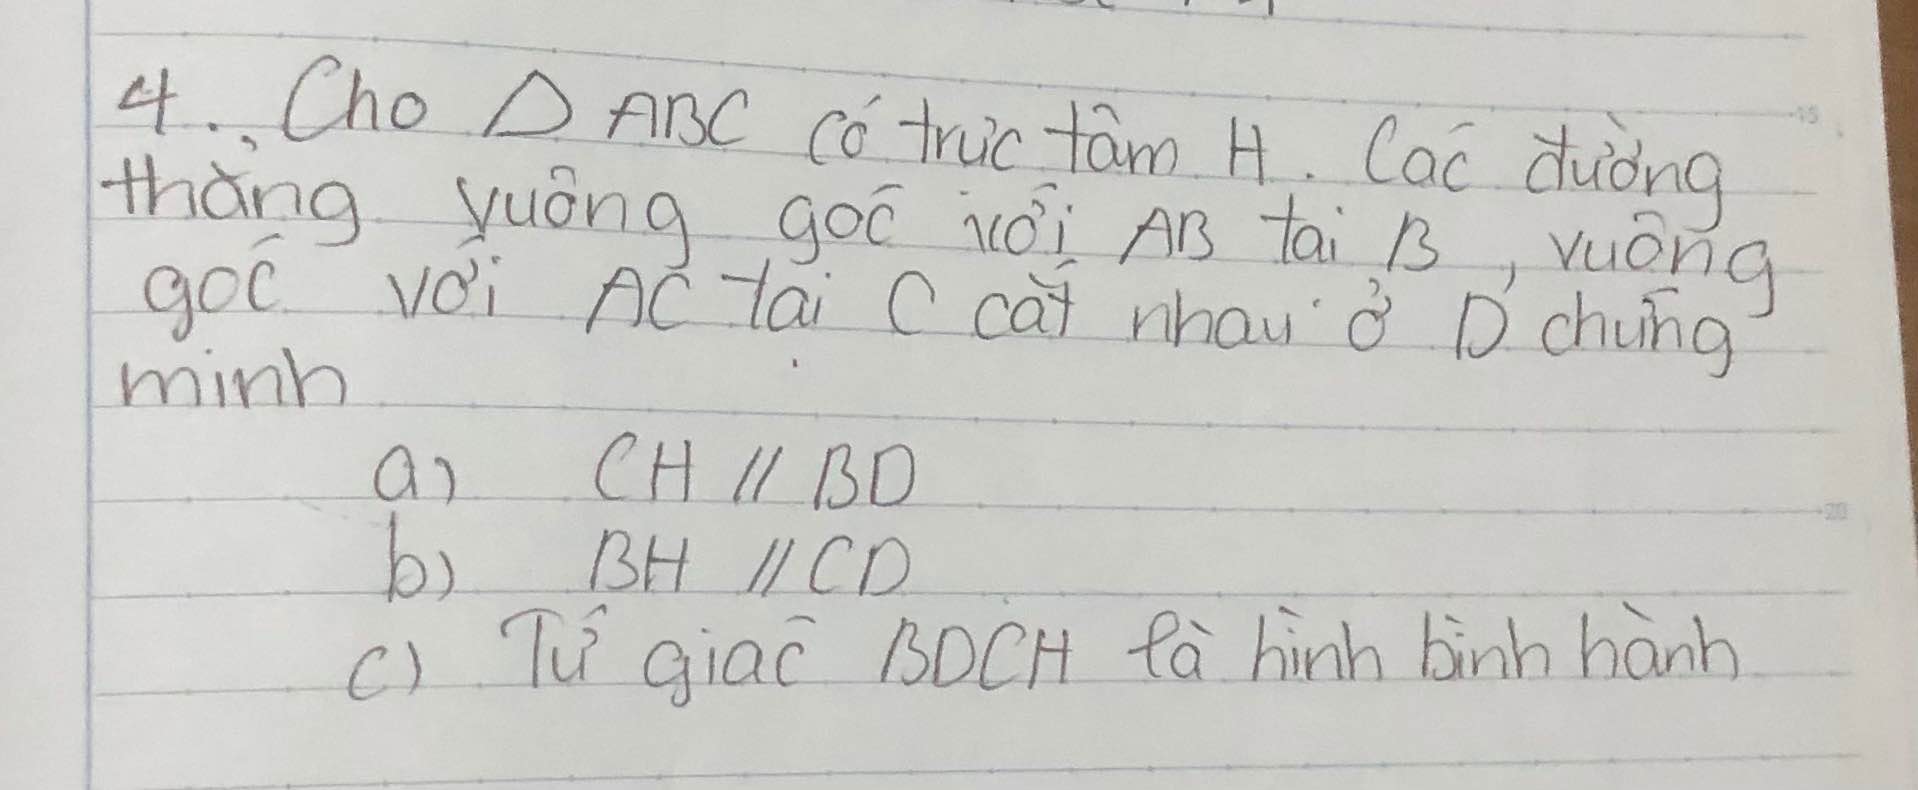 4. Cho △ ABC có trực tâm H. Các đường
thẳng vuông góc với AB tại B, vuông
góc với AC tại C cắt nhau ở D chứng
minh
a) CH // BD
b) BH // CD
c) Tứ giác BDCH là hình bình hành